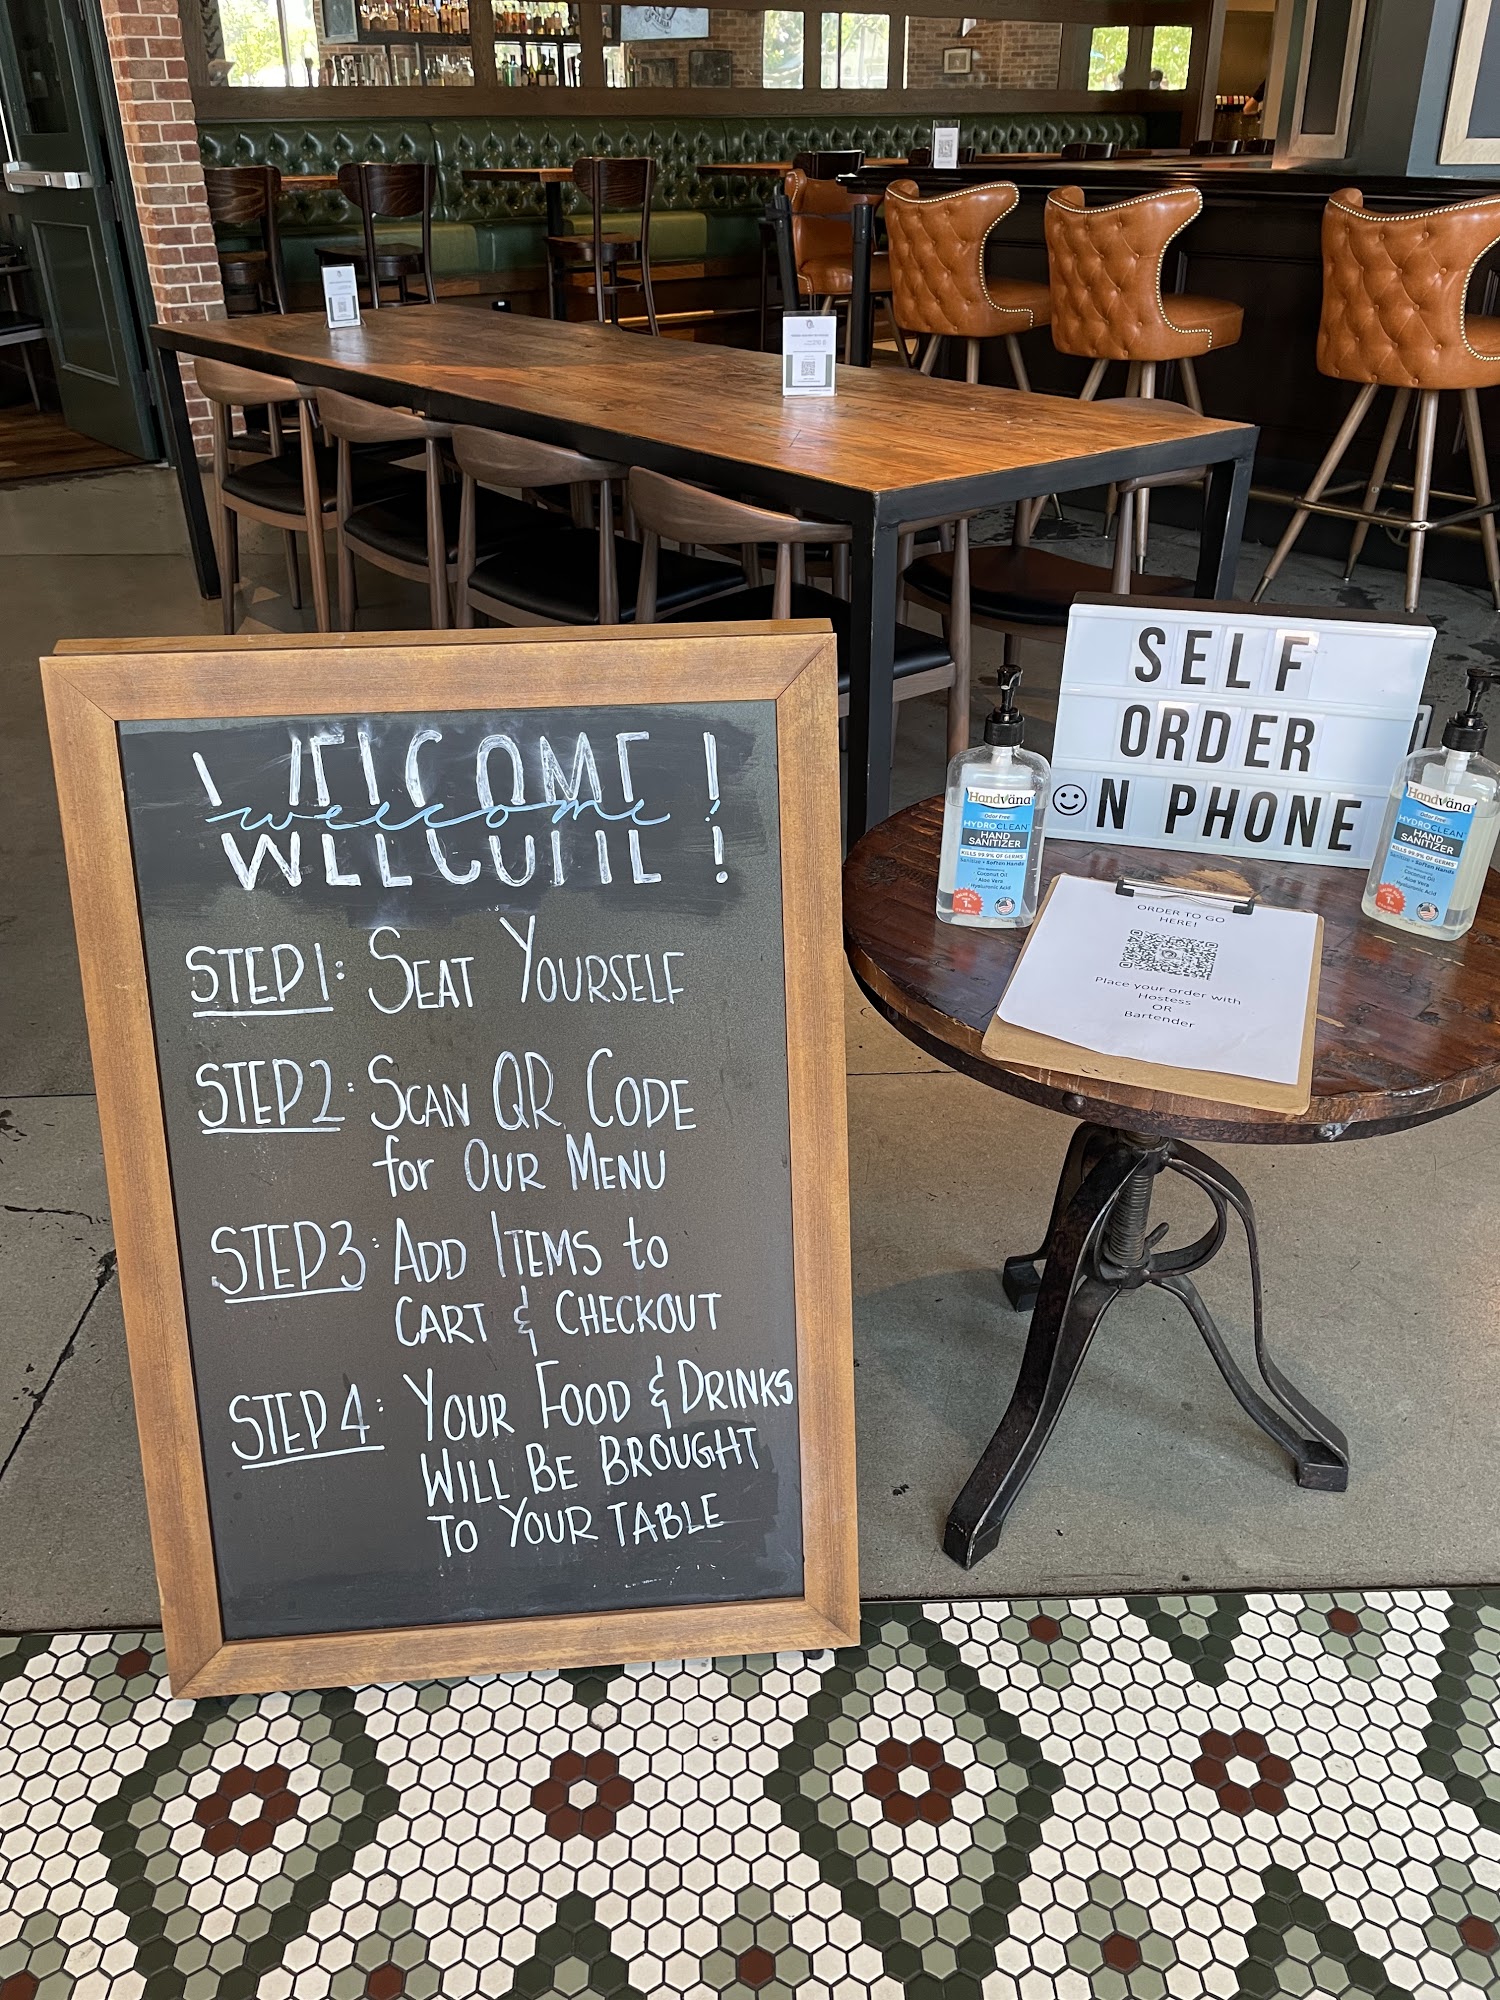 WELCOME !
welcome !
WELCOME !
STEP 1: SEAT YOURSELF
STEP 2: SCAN QR CODE
for OUR MENU
STEP 3: ADD ITEMS to
CART & CHECKOUT
STEP 4: YOUR FOOD & DRINKS
WILL BE BROUGHT
TO YOUR TABLE
SELF
ORDER
☺N PHONE
HandVāna
Odor Free
HYDROCLEAN
HAND
SANITIZER
KILLS 99.9% OF GERMS
Sanitize + Soften Hands
Coconut Oil
Aloe Vera
Hyaluronic Acid
ORDER TO GO
HERE!
Place your order with
Hostess
OR
Bartender
HandVāna
Odor Free
HYDROCLEAN
HAND
SANITIZER
KILLS 99.9% OF GERMS
Sanitize + Soften Hands
Coconut Oil
Aloe Vera
Hyaluronic Acid